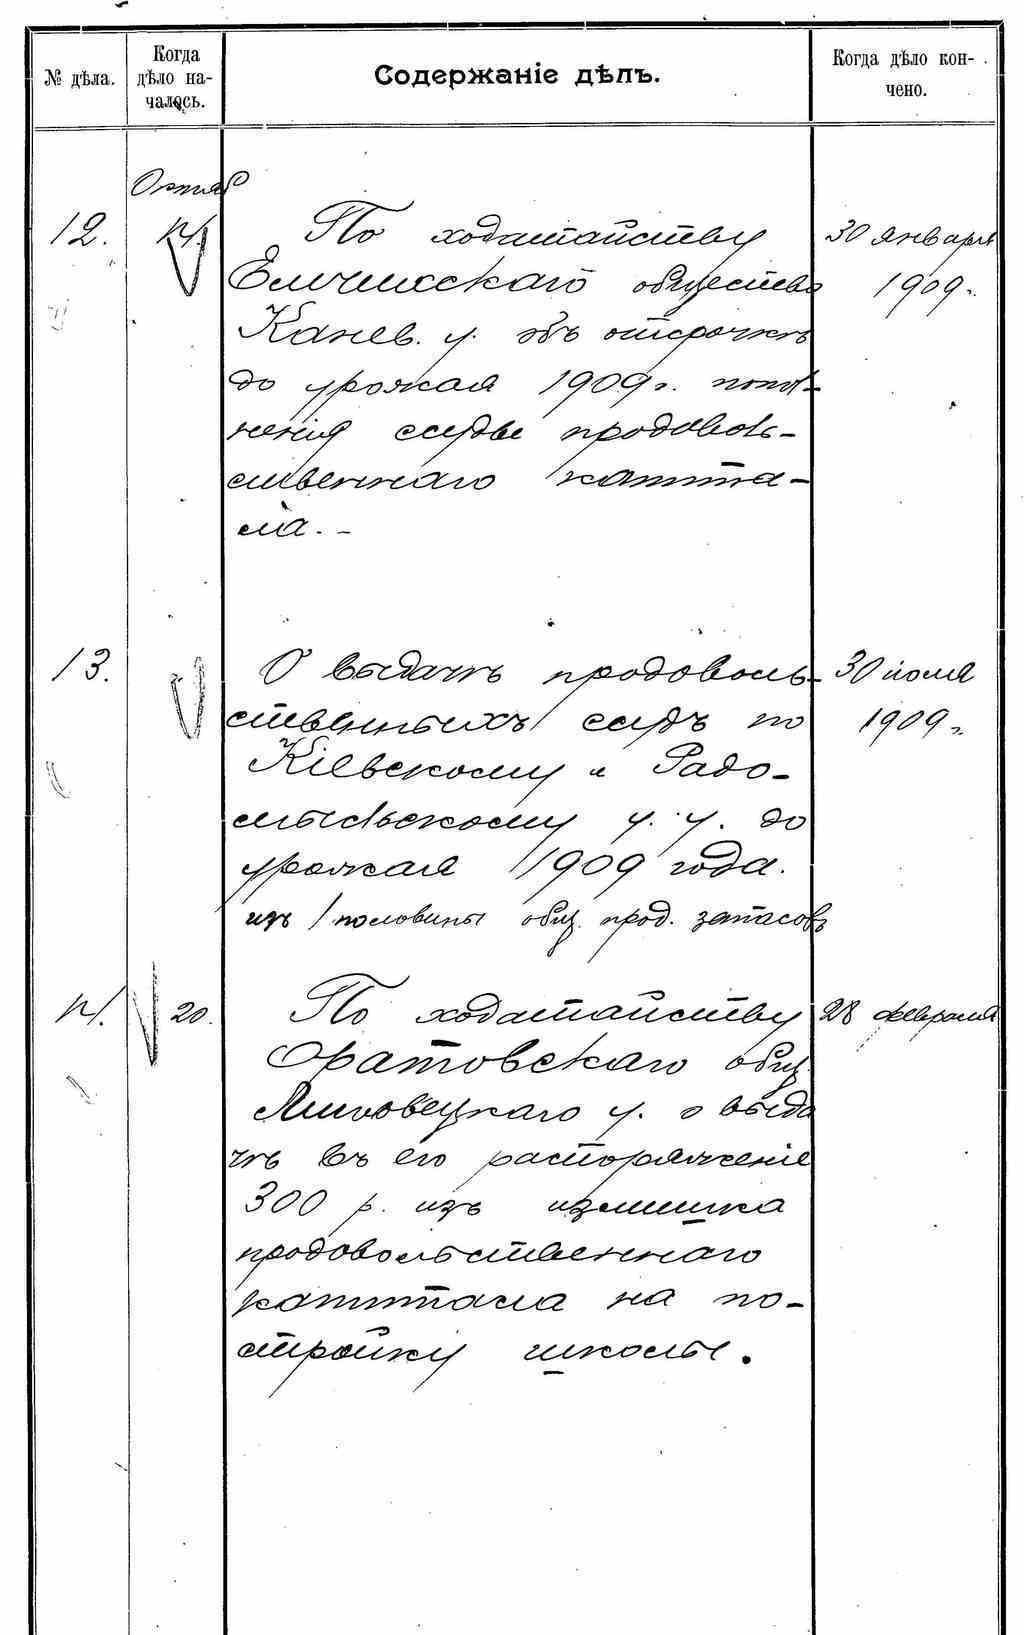 № дѣла.
Когда
дѣло на-
чалось.
Содержаніе дѣлъ.
Когда дѣло кон-
чено.
Октяб
12.
14.
По ходатайству
30 января
Емчихскаго общества
1909 г.
Канев. у. объ отсрочкѣ
до урожая 1909 г. попол-
ненія ссуды продоволь-
ственнаго капита-
ла. -
13.
О выдачѣ продоволь-
30 іюля
ственныхъ ссудъ по
1909 г.
Кіевскому и Радо-
мысльскому у. у. до
урожая 1909 года.
изъ половины общ. прод. запасовъ
14.
20.
По ходатайству
28 февраля
Оратовскаго общ.
Липовецкаго у. о выда
чѣ въ его распоряженіе
300 р. изъ излишка
продовольственнаго
капитала на по-
стройку школы.